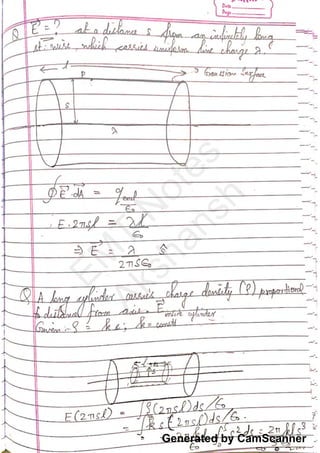 Date
Page
Q E⃗ = ? at a distance s from an infinitely long
st. wire which carries uniform line charge λ.
l
→ Gaussian Surface
P
s
λ
∮E⃗·dA⃗ = q_encl/ε₀
E·2πsl = λl/ε₀
⇒ E⃗ = λ/2πsε₀ ŝ
Q A long cylinder carries charge density (ρ) proportional
to distance from axis. E⃗ inside cylinder
Given: ρ = ks; k = const
E(2πsl) = ∫ρ(2πsl)ds/ε₀
= ∫ks(2πsl)ds/ε₀.
EMFT Notes
Generated by CamScanner